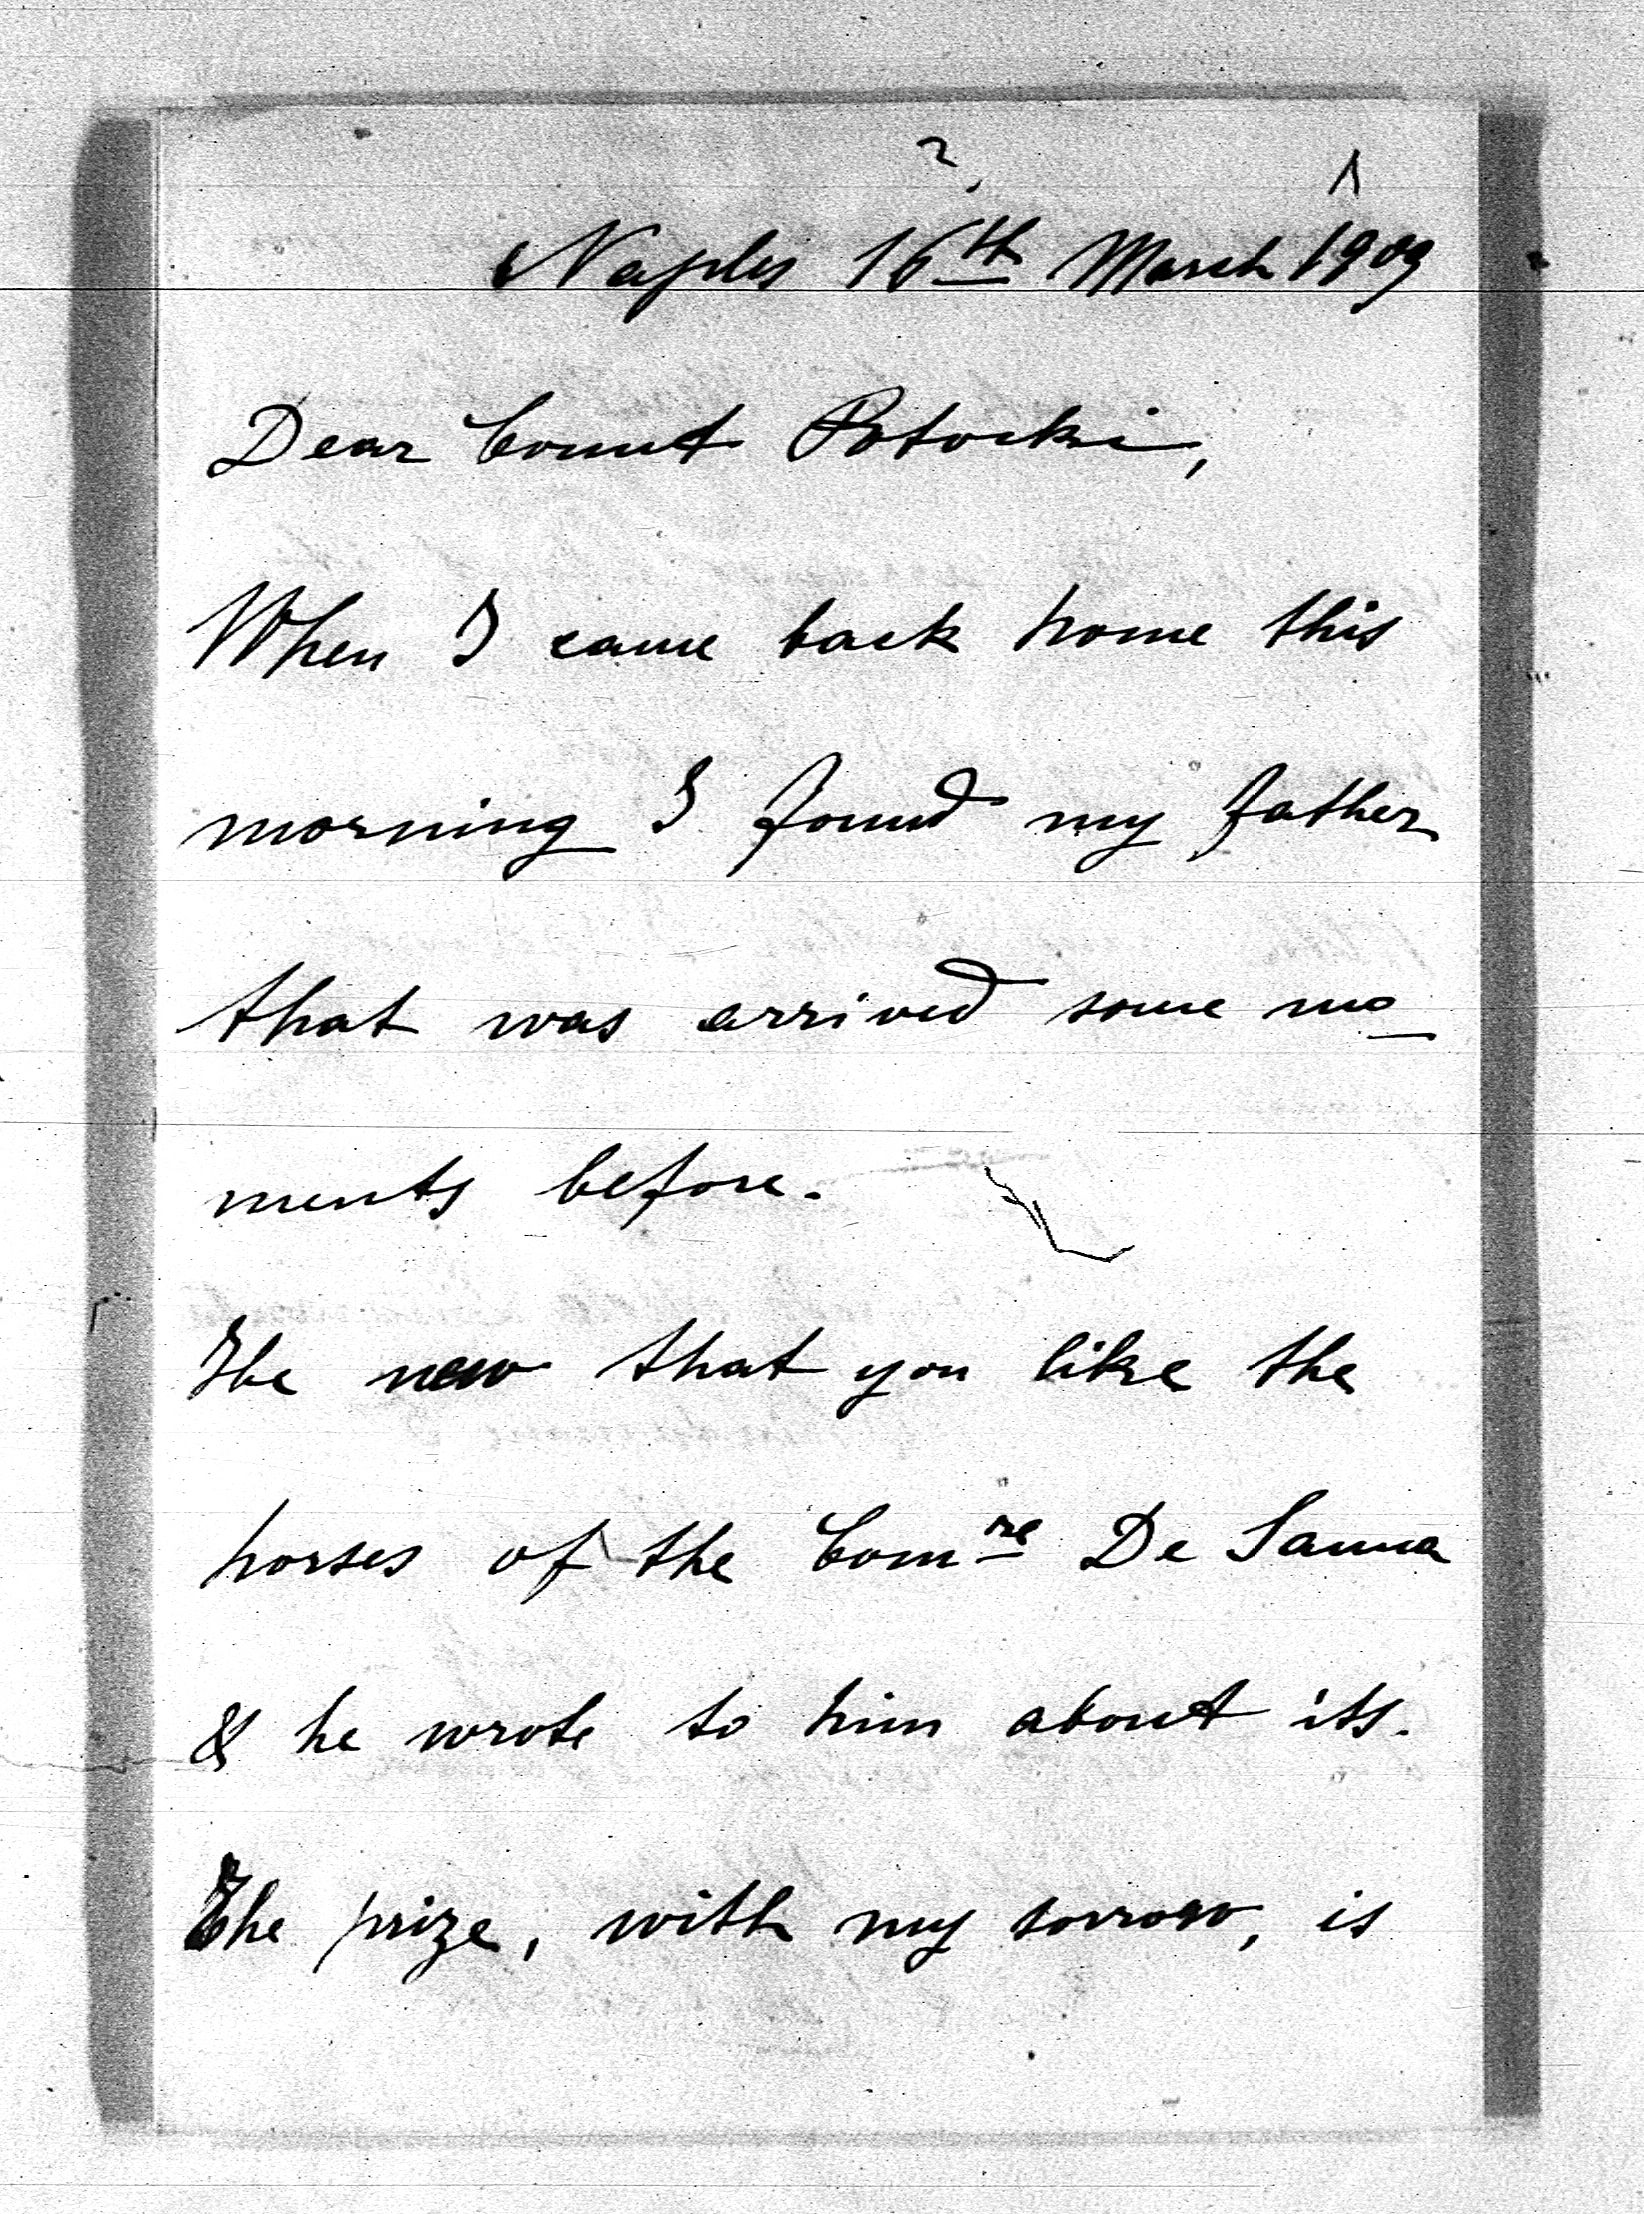 2.
1
Naples 16th March 1909
Dear Count Potocki,
When I came back home this
morning I found my father
that was arrived some mo
ments before.
The new that you like the
horses of the Comre De Sanna
& he wrote to him about its.
The prize, with my sorrow, is